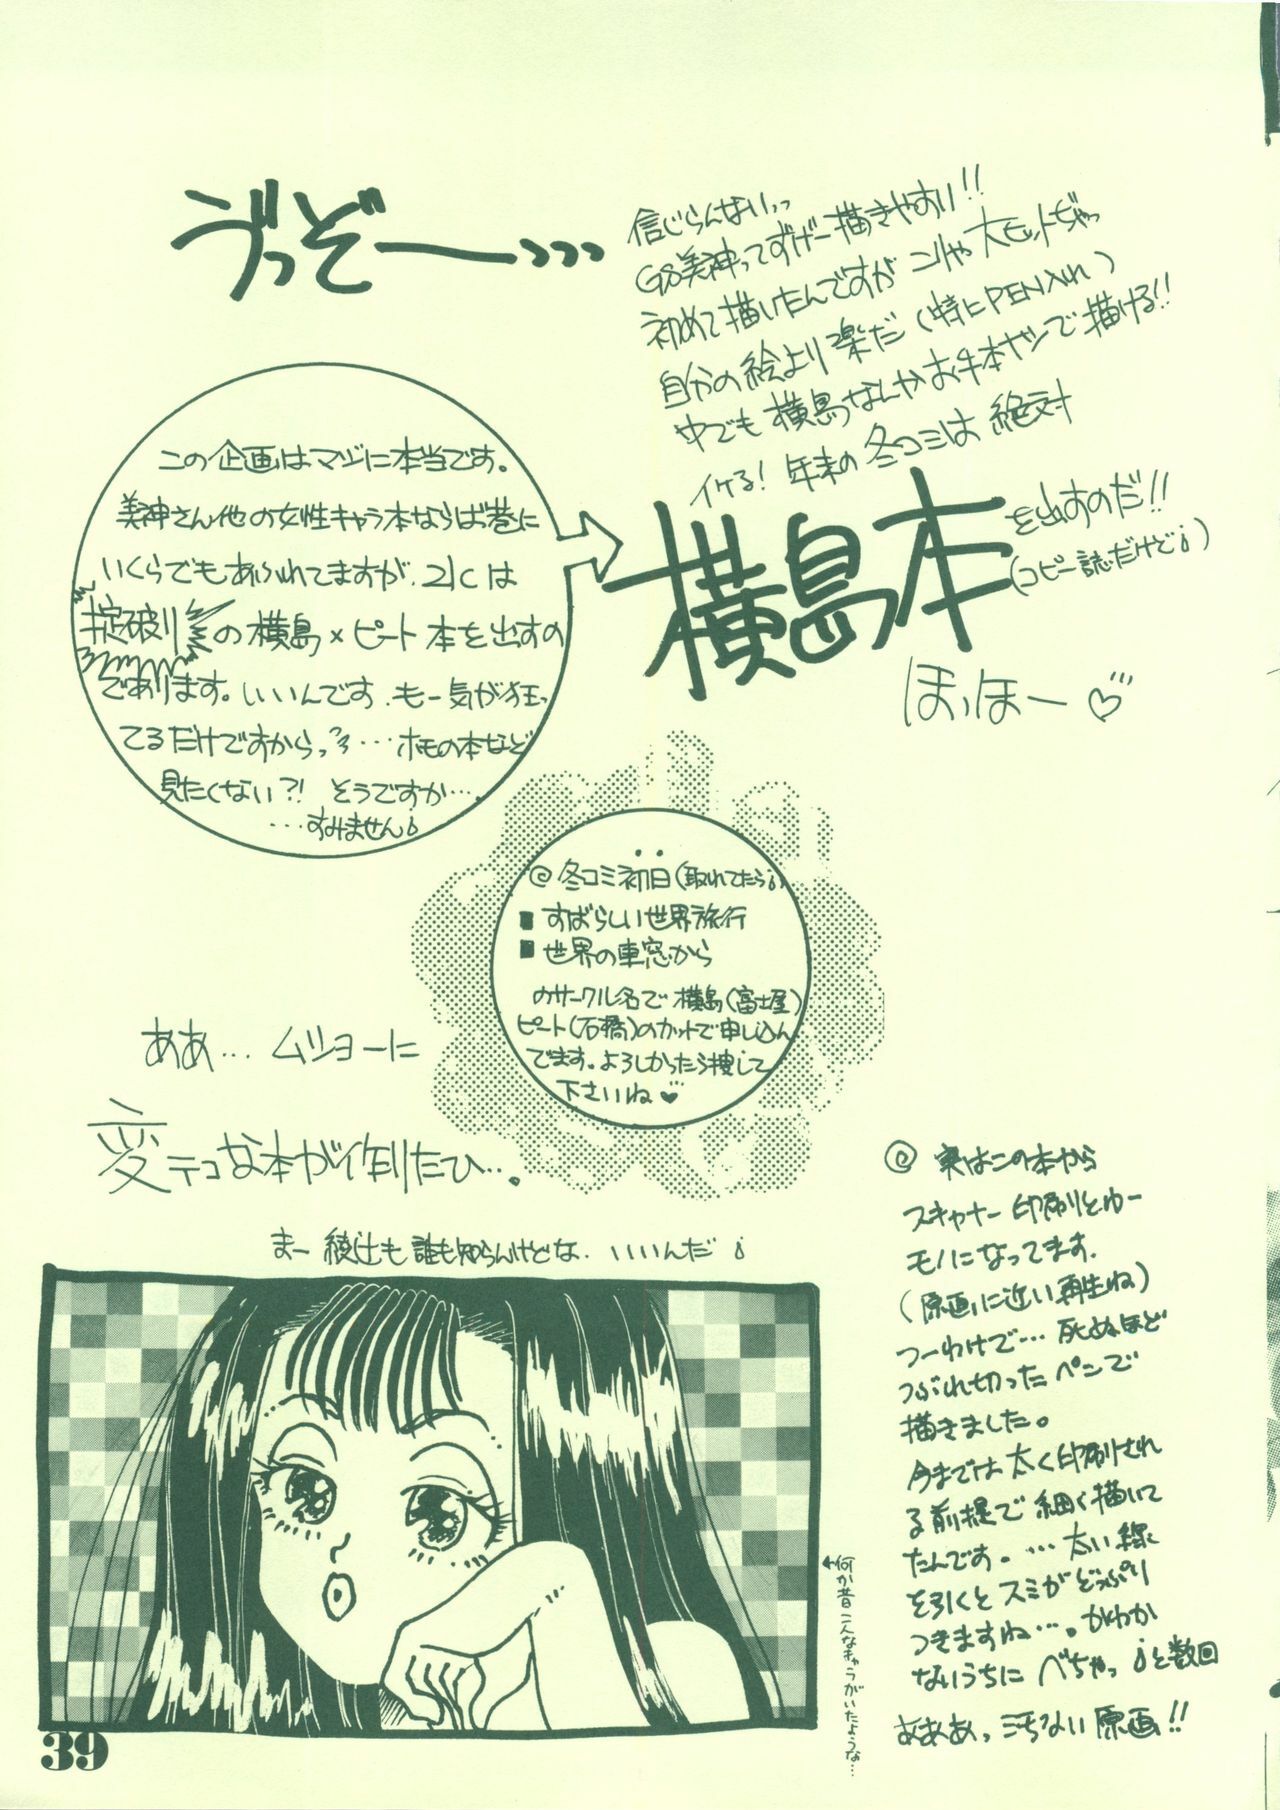 ゔっぞー････
信じらんないっ
GS美神ってすげー描きやすい!!
初めて描いたんですが こりゃ大ヒットぢゃっ
自分の絵より楽だ(特にPEN入れ)
中でも 横島なんかお手本ナシで描ける!!
イケる! 年末の冬コミは 絶対
横島本
を出すのだ!!
(コピー誌だけど)
ほっほー♡
この企画はマジに本当です。
美神さん他の女性キャラ本ならば巷に
いくらでもあふれてますが、21Cは
掟破りの横島×ピート本を出すの
であります。いいんです、もー気が狂っ
てるだけですからっ…ホモの本など
見たくない?! そうですか…
…すみません
◎冬コミ初日(取れてたら)
■すばらしい世界旅行
■世界の車窓から
のサークル名で 横島(富士屋)
ピート(石橋)のカットで申し込ん
でます。よろしかったら捜して
下さいね♥
ああ… ムショーに
変テコな本が作りたひ…。
まー 綾辻も 誰も知らんけどな… いいんだ
◎ 実はこの本から
スキャナー印刷とゆー
モノになってます。
(原画に近い再生ね)
つーわけで… 死ぬほど
つぶれ切ったペンで
描きました。
今までは太く印刷され
る前提で細く描いて
たんです。…太い線
を引くとスミがどっぷり
つきますね…。かわか
ないうちに べちゃっと数回
あああっ 汚ない原画!!
←何か昔こんなキャラがいたような…
39